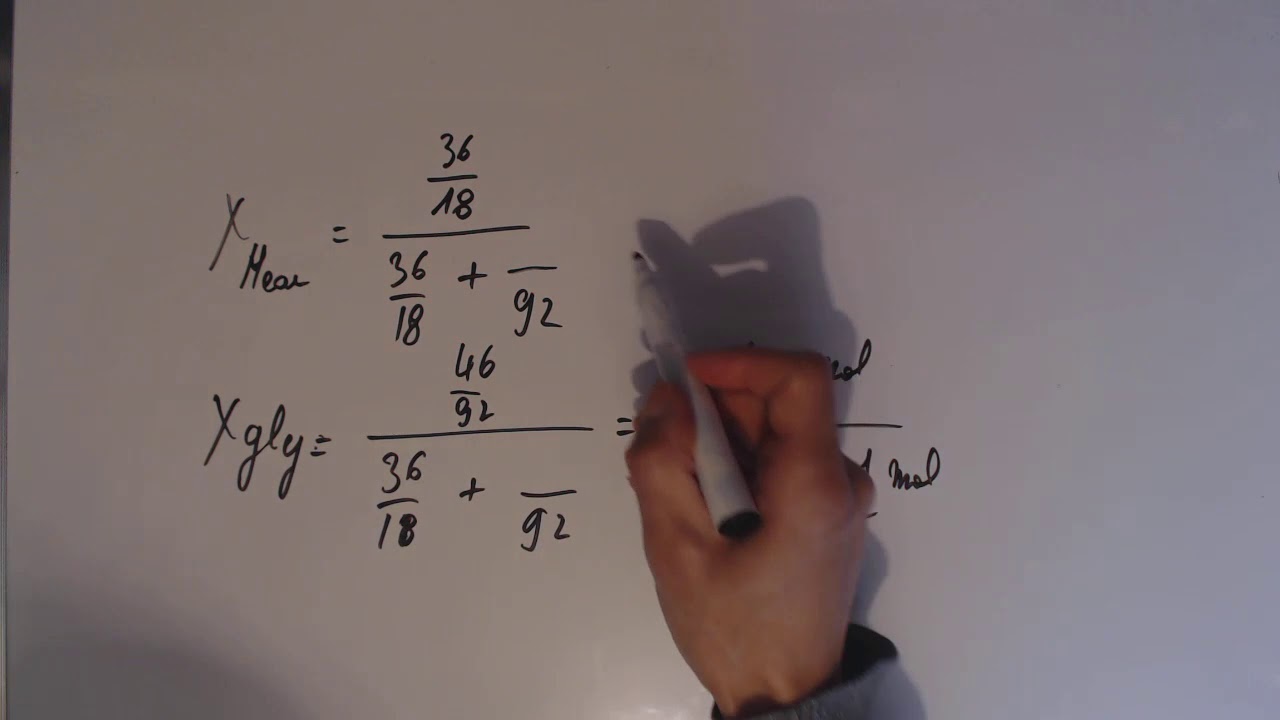 X Meau = 36/18 / (36/18 + /92)
X gly = 46/92 / (36/18 + /92) =
mol
mol